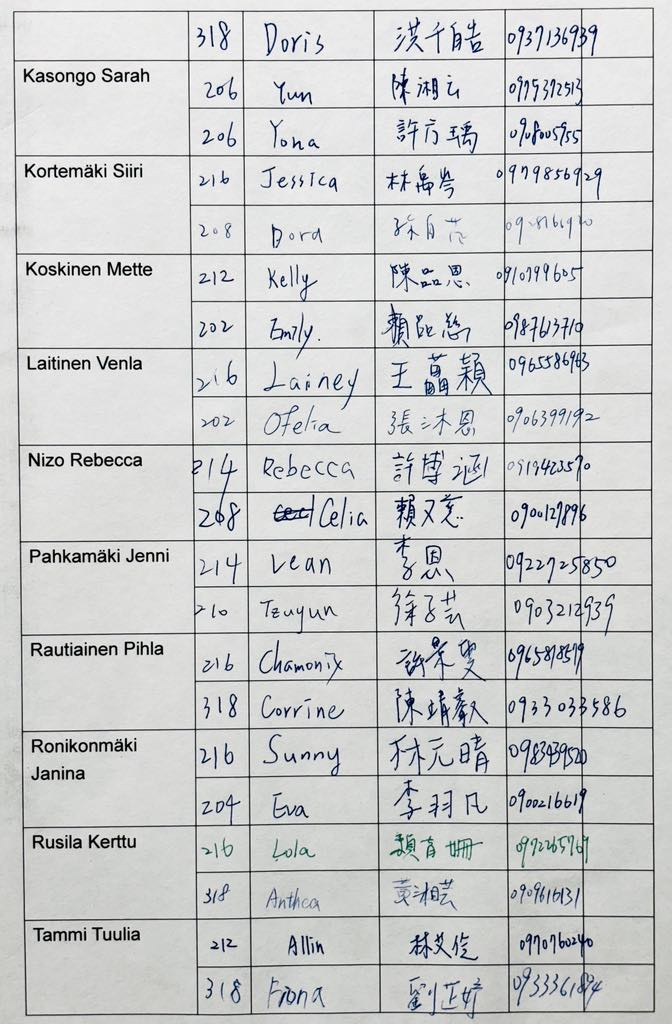 318 Doris 洪千皓 0937136939
Kasongo Sarah
206 Yun 陳湘云 0975372513
206 Yona 許方瑀 0908005955
Kortemäki Siiri
216 Jessica 林禹岑 0979856929
208 Dora
Koskinen Mette
212 Kelly 陳品恩 0910799605
202 Emily. 賴品慈 0987613710
Laitinen Venla
216 Lainey 王 穎 0965586963
202 Ofelia 張沐恩 0906399192
Nizo Rebecca
214 Rebecca 許博涵 0919423570
208 Celia 賴又慈 0900127896
Pahkamäki Jenni
214 Lean 李恩 0922725850
210 Tzuyun 徐子芸 0903212939
Rautiainen Pihla
216 Chamonix 許景 0965818579
318 Corrine 陳靖叡 0933033586
Ronikonmäki
Janina
216 Sunny 林元晴 0983439520
204 Eva 李羽凡 0900216619
Rusila Kerttu
216 Lola 育姍 0972265769
318 Anthea 黃湘芸 0909616131
Tammi Tuulia
212 Allin 林艾佺 0970760240
318 Fiona 劉芷婷 0933361894